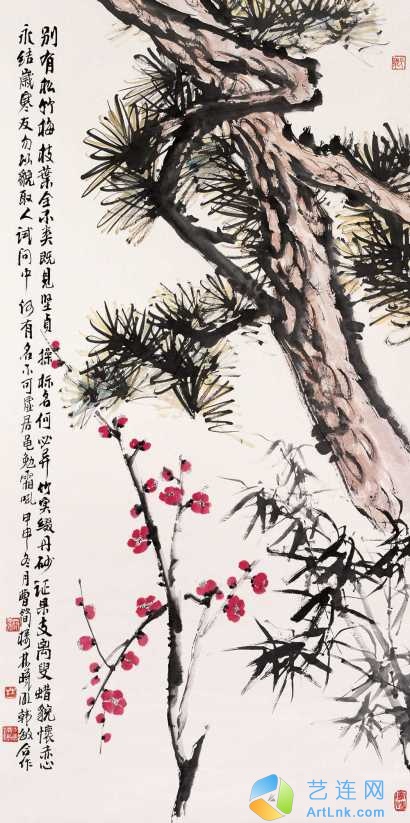 别有松竹梅枝葉全不类既見坚貞操标名何必异竹实缀丹砂证果支离叟蜡貌懷恋心
永结歲寒友勿以貌取人试问中何有名不可虚居黾勉霜甲申冬月曹简楼林曦明韩敏合作
艺连网
ArtLnk.com